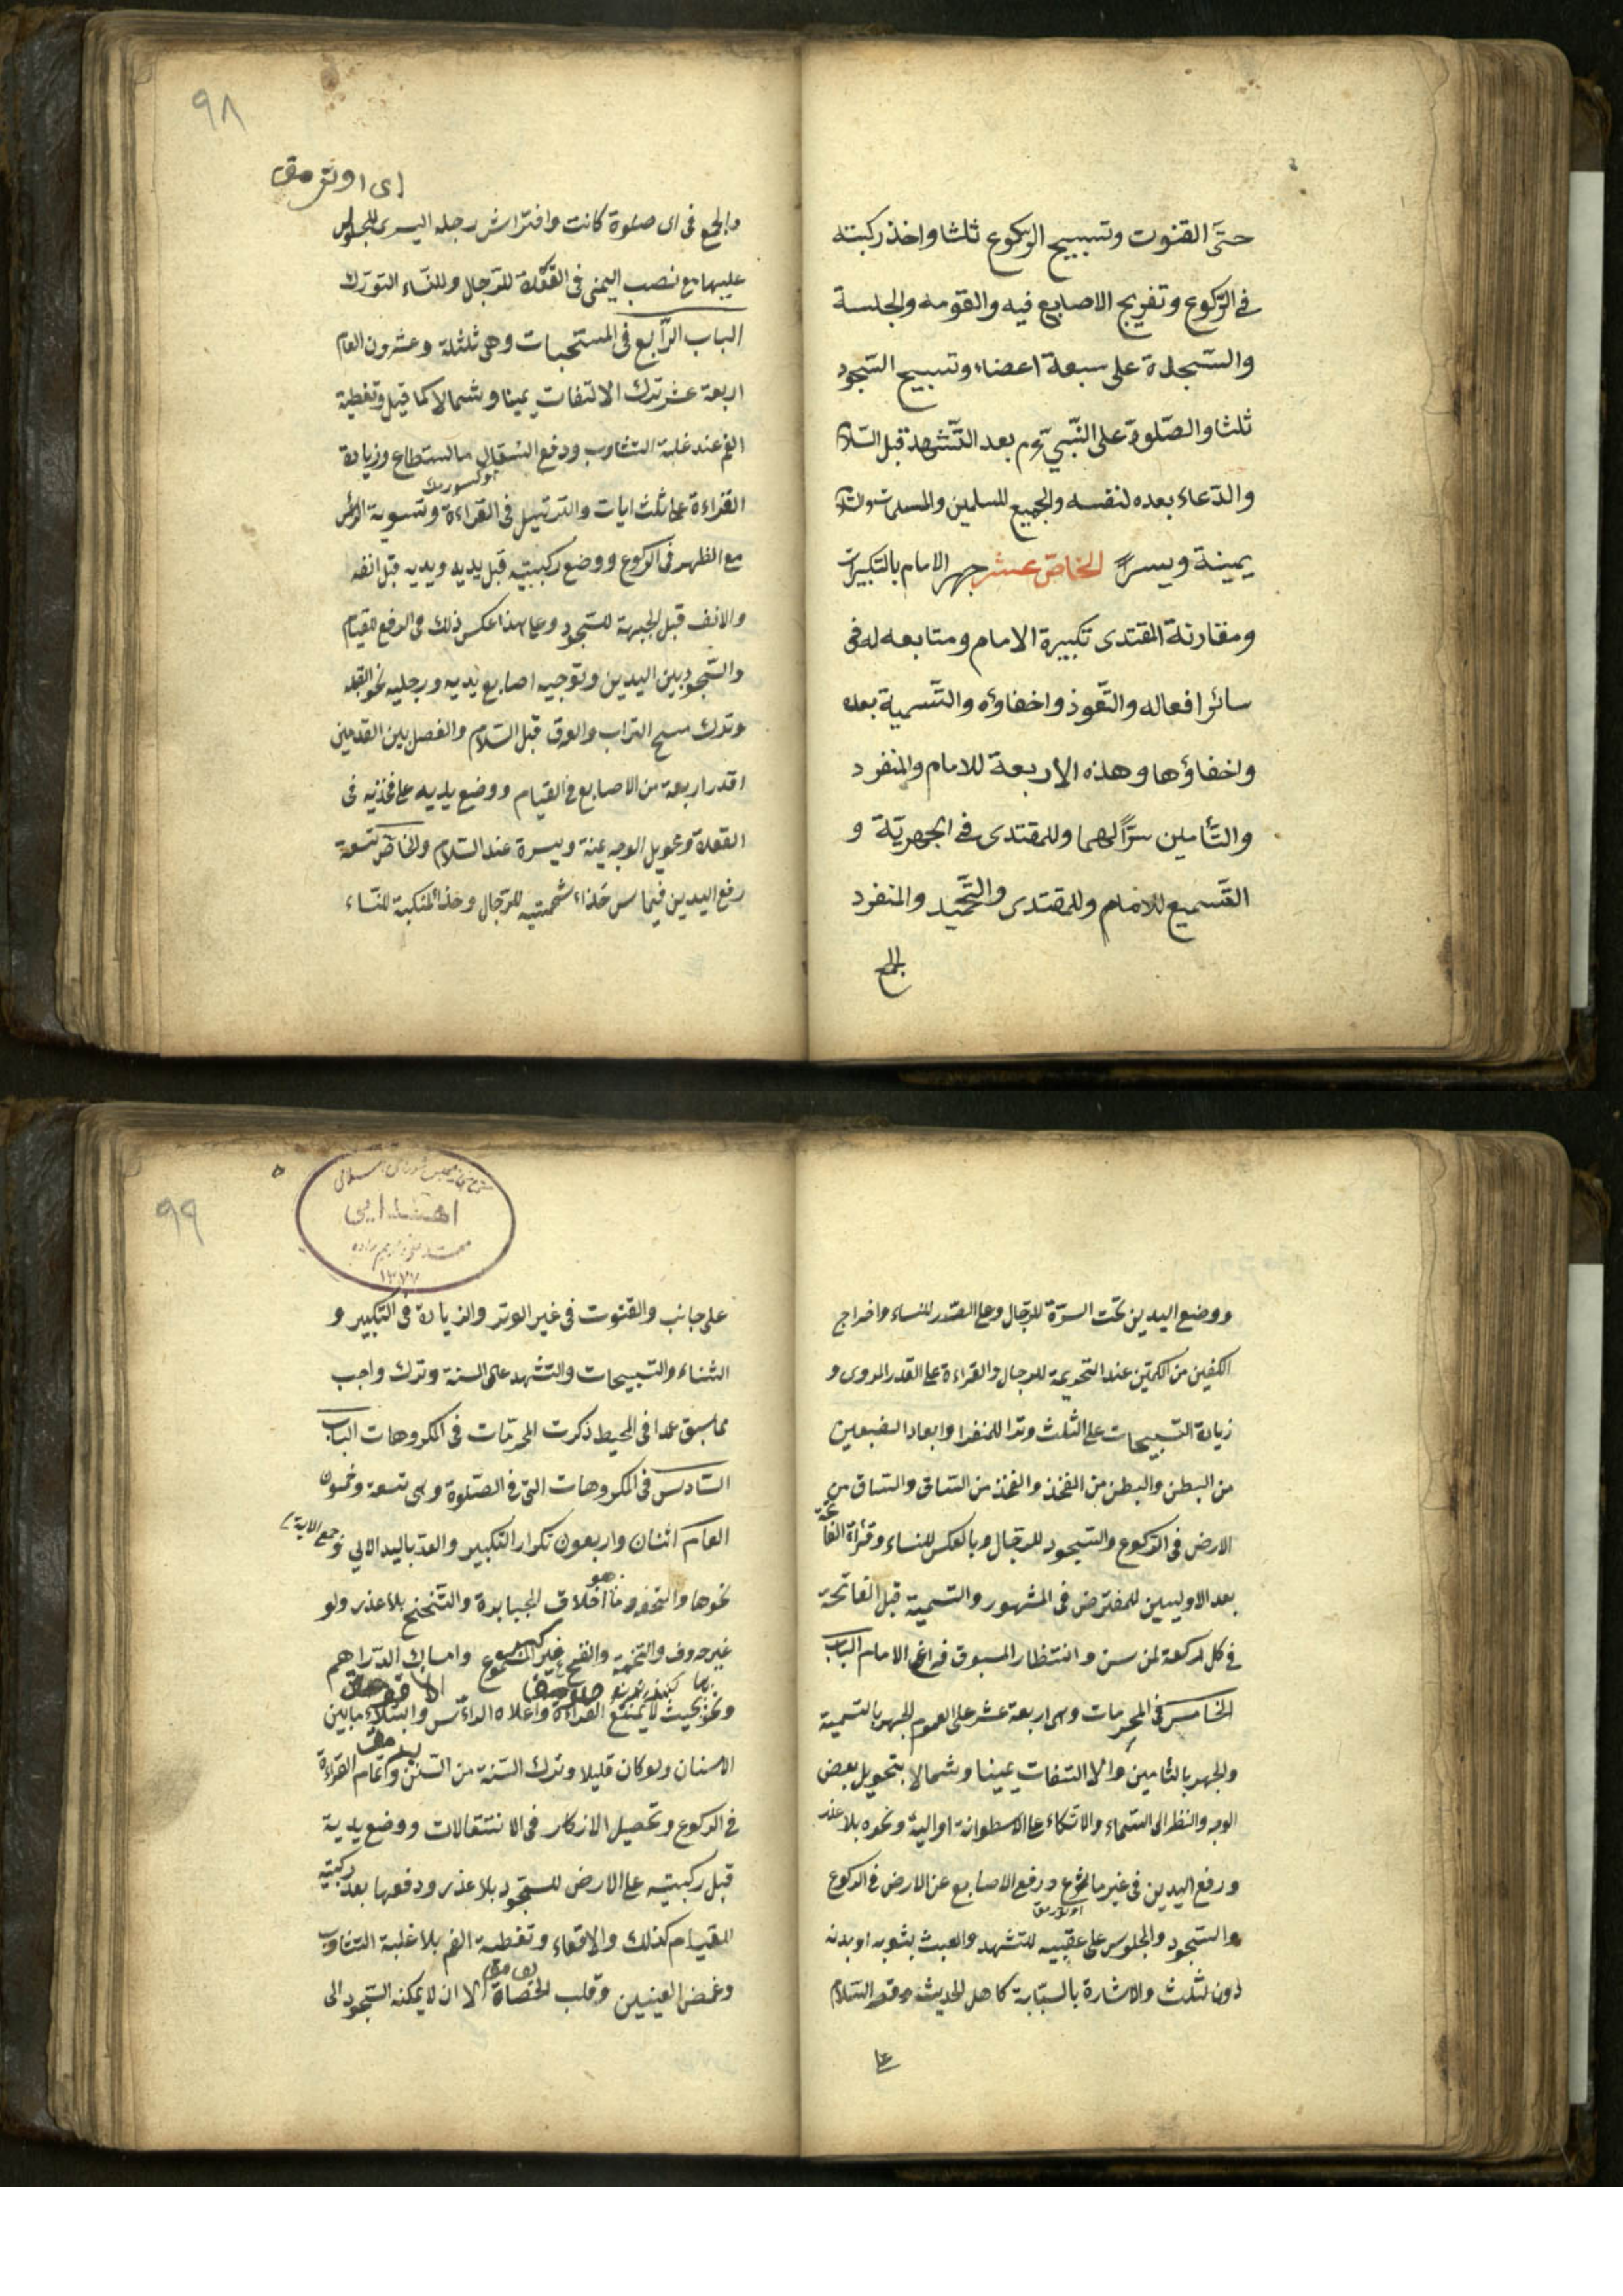 حتى القنوت وتسبيح الركوع ثلثا واخذ ركبته
في الركوع وتفريج الاصابع فيه والقومه والجلسة
والسجدة على سبعة اعضاء وتسبيح السجود
ثلثا والصلوة على النبي بعد التشهد قبل السلام
والدعاء بعده لنفسه ولجميع المسلمين والمسلمات والسلام
يمينة ويسرا الخاص عشر جهر الامام بالتكبيرات
ومقارنة المقتدى تكبيرة الامام ومتابعه له فى
سائر افعاله والتعوذ واخفاؤه والتسمية بعده
واخفاؤها وهذه الاربعة للامام والمنفرد
والتأمين سرا لهما وللمقتدى في الجهرية و
التسميع للامام وللمقتدى والتحميد والمنفرد
۹۸
والجمع فى اى صلوة كانت وافتراش رجله اليسرى للجلوس
عليها مع نصب اليمنى فى القعدة للرجال وللنساء التورك
الباب الرابع فى المستحبات وهى ثلثة وعشرون العام
اربعة عشر ترك الالتفات يمينا وشمالا كما قيل وتغطية
الفم عند غلبة التثاوب ودفع السعال ما استطاع وزيادة
القراءة على ثلث ايات والترتيل فى القراءة وتسوية الرأس
مع الظهر فى الركوع ووضع ركبتيه قبل يديه ويديه قبل انفه
والانف قبل الجبهة للسجود وعلى هذا عكس ذلك فى الرفع للقيام
والسجود بين اليدين وتوجيه اصابع يديه ورجليه نحو القبلة
وترك مسح التراب والعرق قبل السلام والفصل بين القدمين
قدر اربعة من الاصابع في القيام ووضع يديه على فخذيه فى
القعدة وتحويل الوجه يمنة ويسرة عند السلام والخاص تسعة
رفع اليدين فيما سن حذاء شحمتيه للرجال وحذا المنكبة للنساء
ووضع اليدين تحت السرة للرجال وعلى الصدر للنساء واخراج
الكفين من الكمين عند التحريمة للرجال والقراءة على القدر المروى و
زيادة التسبيحات على الثلث وترا للمنفرد وابعاد الضبعين
من البطن والبطن من الفخذ والفخذ من الساق والساق من
الارض فى الركوع والسجود للرجال وبالعكس للنساء وقرأة الفاتحة
بعد الاوليين للمفترض فى المشهور والتسمية قبل الفاتحة
فى كل ركعة لمن سن وانتظار المسبوق فراغ الامام الباب
الخامس فى المحرمات وهى اربعة عشر على العموم الجهر بالتسمية
والجهر بالتامين والالتفات يمينا وشمالا بتحويل بعض
الوجه والنظر الى السماء والاتكاء على الاسطوانة او اليد ونحوه بلا عذر
ورفع اليدين فى غير ما شرع ورفع الاصابع عن الارض فى الركوع
والسجود والجلوس على عقبيه للتشهد والعبث بثوبه او بدنه
دون الثلث والاشارة بالسبابة كاهل الحديث وقصر السلام
۹۹
اهتدایی
۱۳۷۷
على جانب والقنوت فى غير الوتر والزيادة فى التكبير و
الثناء والتسبيحات والتشهد على السنة وترك واجب
مما سبق عمدا فى المحيط ذكرت المحرمات فى المكروهات الباب
السادس فى المكروهات التى فى الصلوة وهى تسعة وخمسون
العام اثنان واربعون تكرار التكبير والعد باليد الآي و
نحوها والتحفر وما هو اخلاق الجبابرة والتنحنح بلا عذر ولو
غير حروف والتنخمة والنفخ غير المسموع وامساك الدراهم
ونحو بحيث لا يمنع القراءة واعلاه الرأس وابتلاء ما بين
الاسنان ولو كان قليلا وترك السنة من السنن واتمام القراءة
فى الركوع وتحصيل الاذكار فى الانتقالات ووضع يدية
قبل ركبتيه على الارض للسجود بلا عذر ورفعها بعد ركبتيه
للقيام كذلك والاقعاء وتغطية الفم بلا غلبة التثاوب
وغمض العينين وقلب الحصاة الا ان لا يمكنه السجود الى